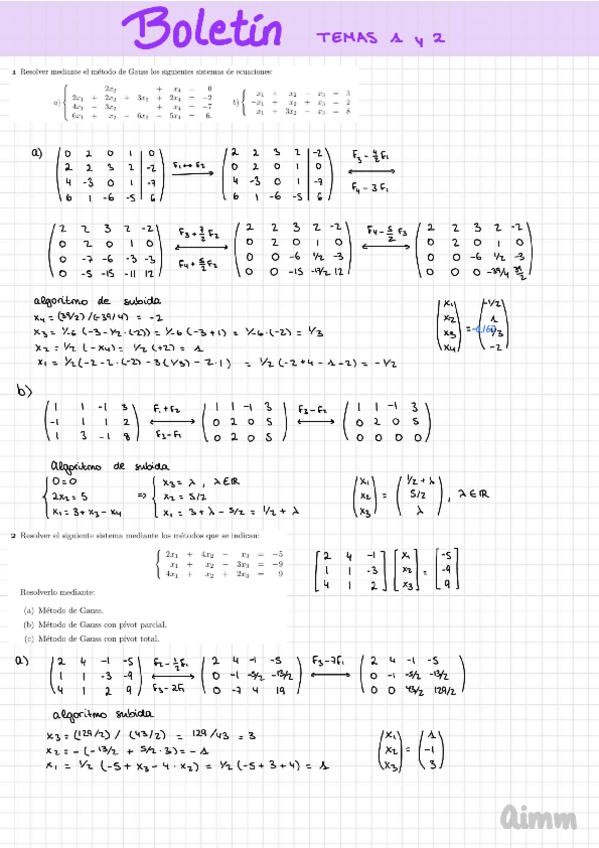 Boletín TEMAS 1 y 2
1 Resolver mediante el método de Gauss los siguientes sistemas de ecuaciones:
a) { 2x₂ + x₄ = 0
2x₁ + 2x₂ + 3x₃ + 2x₄ = −2
4x₁ − 3x₂ + x₄ = −7
6x₁ + x₂ − 6x₃ − 5x₄ = 6.
b) { x₁ + x₂ − x₃ = 3
−x₁ + x₂ + x₃ = 2
x₁ + 3x₂ − x₃ = 8
a)
0 2 0 1 | 0
2 2 3 2 | -2
4 -3 0 1 | -7
6 1 -6 -5 | 6
F₁↔F₂
2 2 3 2 | -2
0 2 0 1 | 0
4 -3 0 1 | -7
6 1 -6 -5 | 6
F₃ - 4/2 F₁
F₄ - 3F₁
2 2 3 2 -2
0 2 0 1 0
0 -7 -6 -3 -3
0 -5 -15 -11 12
F₃ + 7/2 F₂
F₄ + 5/2 F₂
2 2 3 2 -2
0 2 0 1 0
0 0 -6 1/2 -3
0 0 -15 -17/2 12
F₄ - 5/2 F₃
2 2 3 2 -2
0 2 0 1 0
0 0 -6 1/2 -3
0 0 0 -39/4 39/2
algoritmo de subida
x₄ = (39/2) / (-39/4) = -2
x₃ = 1/-6 (-3 - 1/2·(-2)) = 1/-6 (-3+1) = 1/-6·(-2) = 1/3
x₂ = 1/2 (-x₄) = 1/2 (+2) = 1
x₁ = 1/2 (-2 - 2·(-2) - 3(1/3) - 2·1) = 1/2 (-2+4-1-2) = -1/2
(x₁ x₂ x₃ x₄) = (-1/2 1 1/3 -2)
b)
1 1 -1 3
-1 1 1 2
1 3 -1 8
F₁+F₂
F₃-F₁
1 1 -1 3
0 2 0 5
0 2 0 5
F₃-F₂
1 1 -1 3
0 2 0 5
0 0 0 0
Algoritmo de subida
{ 0=0
2x₂ = 5
x₁ = 3 + x₃ - x₄
⇒ { x₃ = λ, λ∈ℝ
x₂ = 5/2
x₁ = 3 + λ - 5/2 = 1/2 + λ
(x₁ x₂ x₃) = (1/2+λ 5/2 λ), λ∈ℝ
2 Resolver el siguiente sistema mediante los métodos que se indican:
{ 2x₁ + 4x₂ − x₃ = −5
x₁ + x₂ − 3x₃ = −9
4x₁ + x₂ + 2x₃ = 9
[2 4 -1
1 1 -3
4 1 2] [x₁ x₂ x₃] = [-5 -9 9]
Resolverlo mediante:
(a) Método de Gauss.
(b) Método de Gauss con pivot parcial.
(c) Método de Gauss con pivot total.
a)
2 4 -1 -5
1 1 -3 -9
4 1 2 9
F₂ - 1/2 F₁
F₃ - 2F₁
2 4 -1 -5
0 -1 -5/2 -13/2
0 -7 4 19
F₃ - 7F₁
2 4 -1 -5
0 -1 -5/2 -13/2
0 0 43/2 129/2
algoritmo subida
x₃ = (129/2) / (43/2) = 129/43 = 3
x₂ = -(-13/2 + 5/2·3) = -1
x₁ = 1/2 (-5 + x₃ - 4·x₂) = 1/2 (-5+3+4) = 1
(x₁ x₂ x₃) = (1 -1 3)
aimm